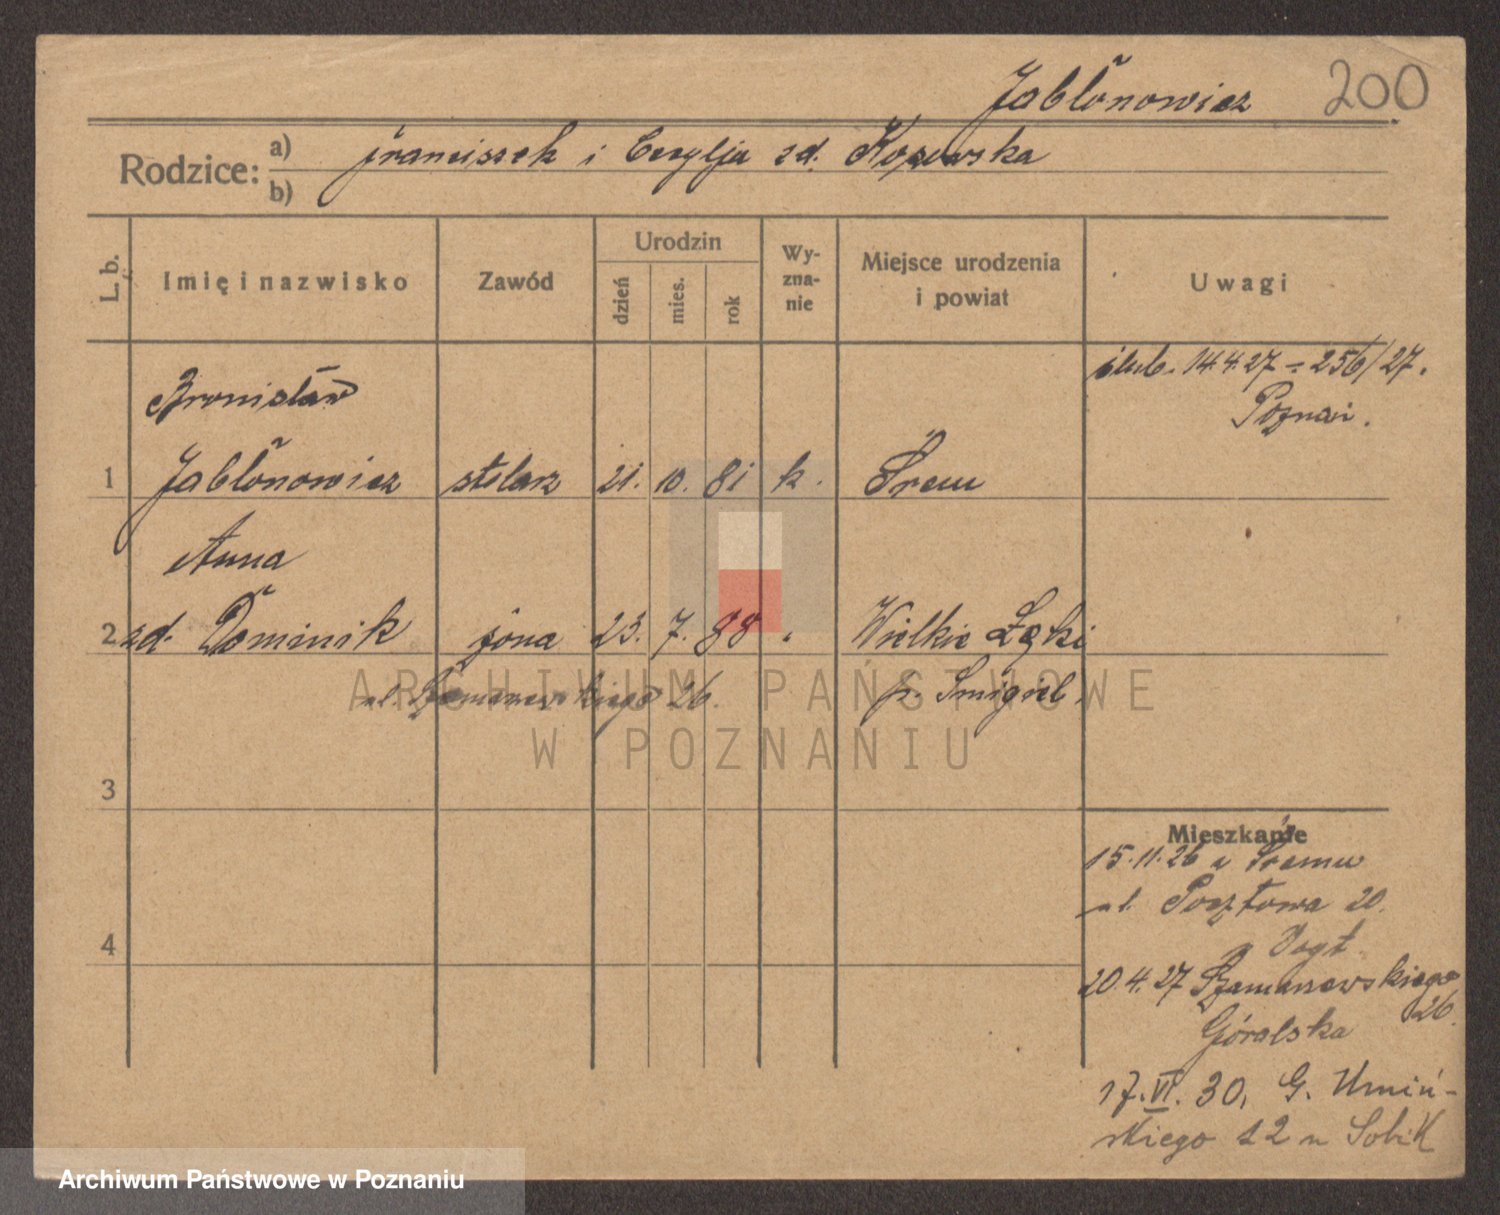 Jabłonowicz 200
Rodzice: a) Franciszek i Cecylja zd. Kozowska
b)
L. b. Imię i nazwisko Zawód Urodzin dzień mies. rok Wyznanie Miejsce urodzenia i powiat Uwagi
ślub. 14.4.27 = 256/27.
Poznań.
Bronisław
1 Jabłonowicz stolarz 21. 10. 81 k. Śrem
Anna
2 zd. Dominik żona 23. 7. 88 " Wielkie Łęki
ul. Szamarzewskiego 26. p. Śmigiel
ARCHIWUM PAŃSTWOWE
W POZNANIU
3
Mieszkanie
15.11.26 z Śremu
ul. Pocztowa 20.
Vogt
4
20.4.27 Szamarzewskiego
26.
Góralska
17.VI.30, G. Umiń-
skiego 12 u Sobik
Archiwum Państwowe w Poznaniu